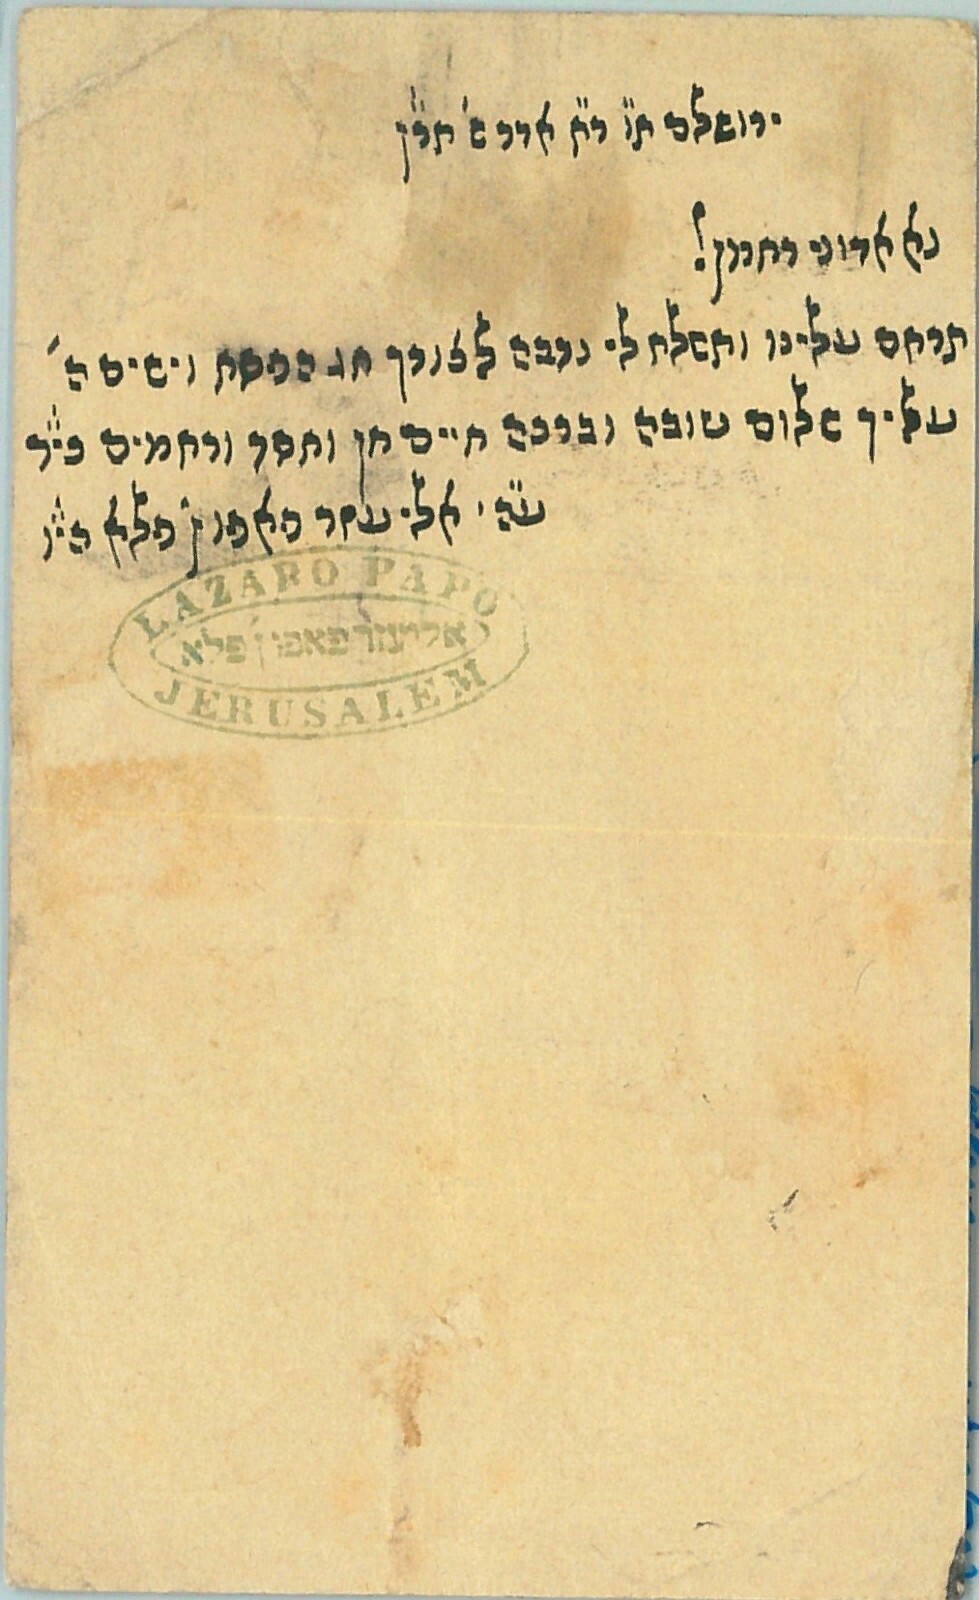 ירושלם ת"ו ר"ח אדר ש' תר"ן
נא אדוני רחמן!
תרחם עלינו ותשלח לי נדבה לצורך חג הפסח וישים ה'
עליך שלום טובה וברכה חיים חן וחסד ורחמים כי"ר
ע"ה אליעזר פאפו ן' פלא הי"ו
LAZARO PAPO
אליעזר פאפו ן' פלא
JERUSALEM